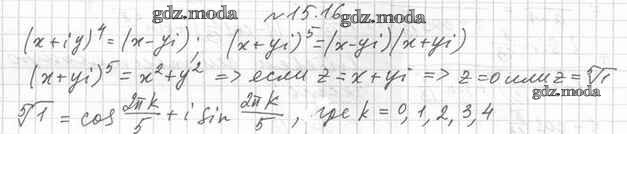 gdz.moda № 15.16 gdz.moda gdz.moda
(x+iy)^4=(x-yi); (x+yi)^5=(x-yi)(x+yi)
(x+yi)^5=x^2+y^2 => если z=x+yi => z=0 или z=⁵√1
gdz.moda
⁵√1 = cos 2πk/5 + i sin 2πk/5, где k=0,1,2,3,4